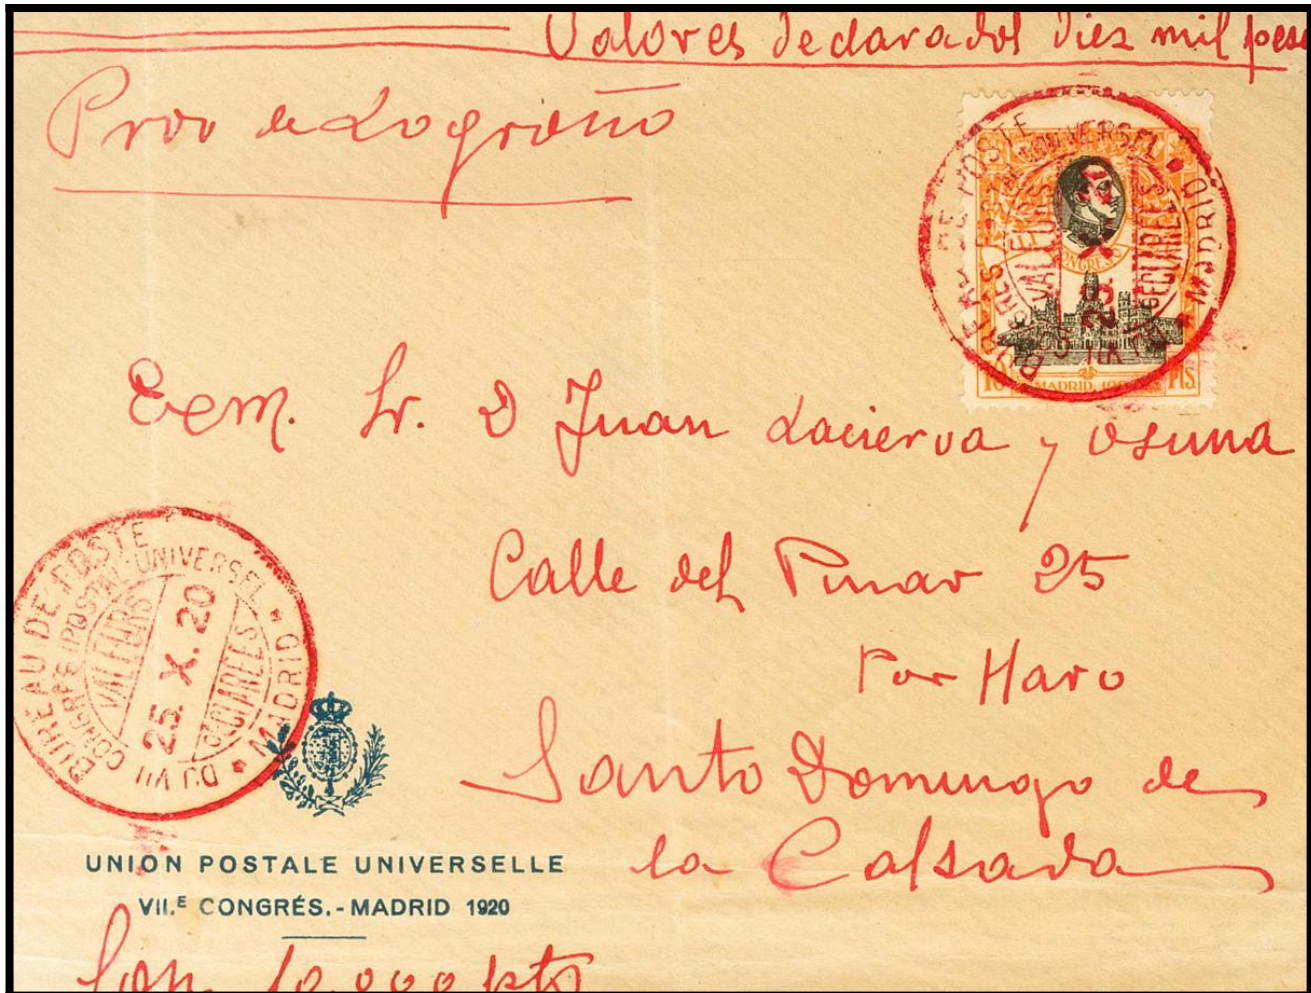 Valores declarados diez mil pese
Prov de Logroño
BUREAU DE POSTE
CONGRÈS POSTAL UNIVERSEL
VALEURS
25. X. 20
DÉCLARÉES
MADRID
CONGRESO
MADRID
10 Pts.
Exm. Sr. D Juan Lacierva y Osuna
Calle del Pinar 25
Por Haro
Santo Domingo de
la Calsada
BUREAU DE POSTE
DU VII CONGRÈS POSTAL UNIVERSEL
VALEURS
25. X. 20
DÉCLARÉES
* MADRID *
UNION POSTALE UNIVERSELLE
VII.E CONGRÉS.-MADRID 1920
Son 10.000 pts